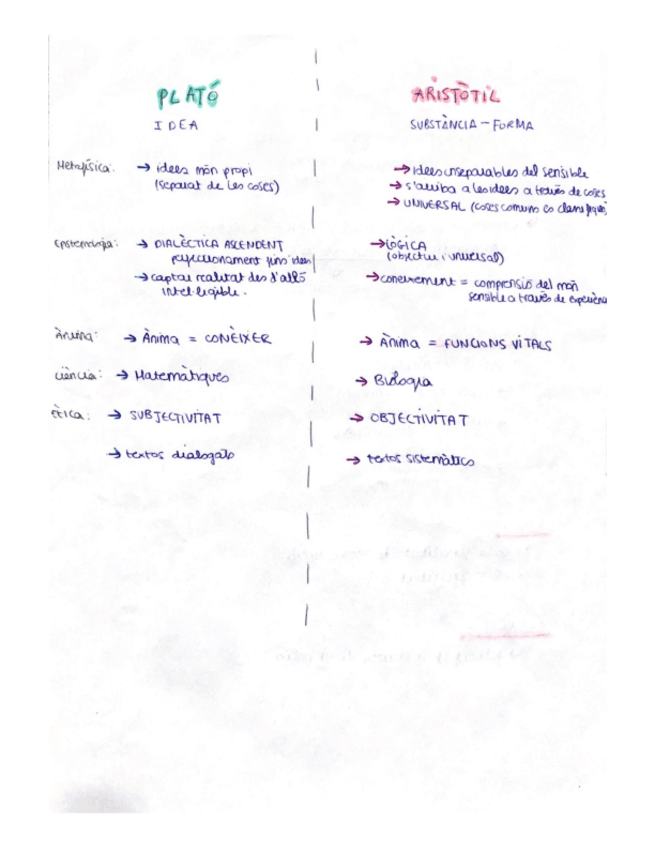 PLATÓ
IDEA
Metafísica:
→ idees món propi
(separat de les coses)
Epistemologia:
→ DIALÈCTICA ASCENDENT
perfeccionament fins idees
→ captar realitat des d'allò
intel·ligible.
Ànima:
→ Ànima = CONÈIXER
ciència:
→ Matemàtiques
ètica:
→ SUBJECTIVITAT
→ textos dialogats
ARISTÒTIL
SUBSTÀNCIA - FORMA
→ idees inseparables del sensible
→ s'arriba a les idees a través de coses
→ UNIVERSAL (coses comuns es
→ LÒGICA
(objectiu i universal)
→ coneixement = comprensió del món
sensible a través de experiència
→ Ànima = FUNCIONS VITALS
→ Biologia
→ OBJECTIVITAT
→ textos sistemàtics